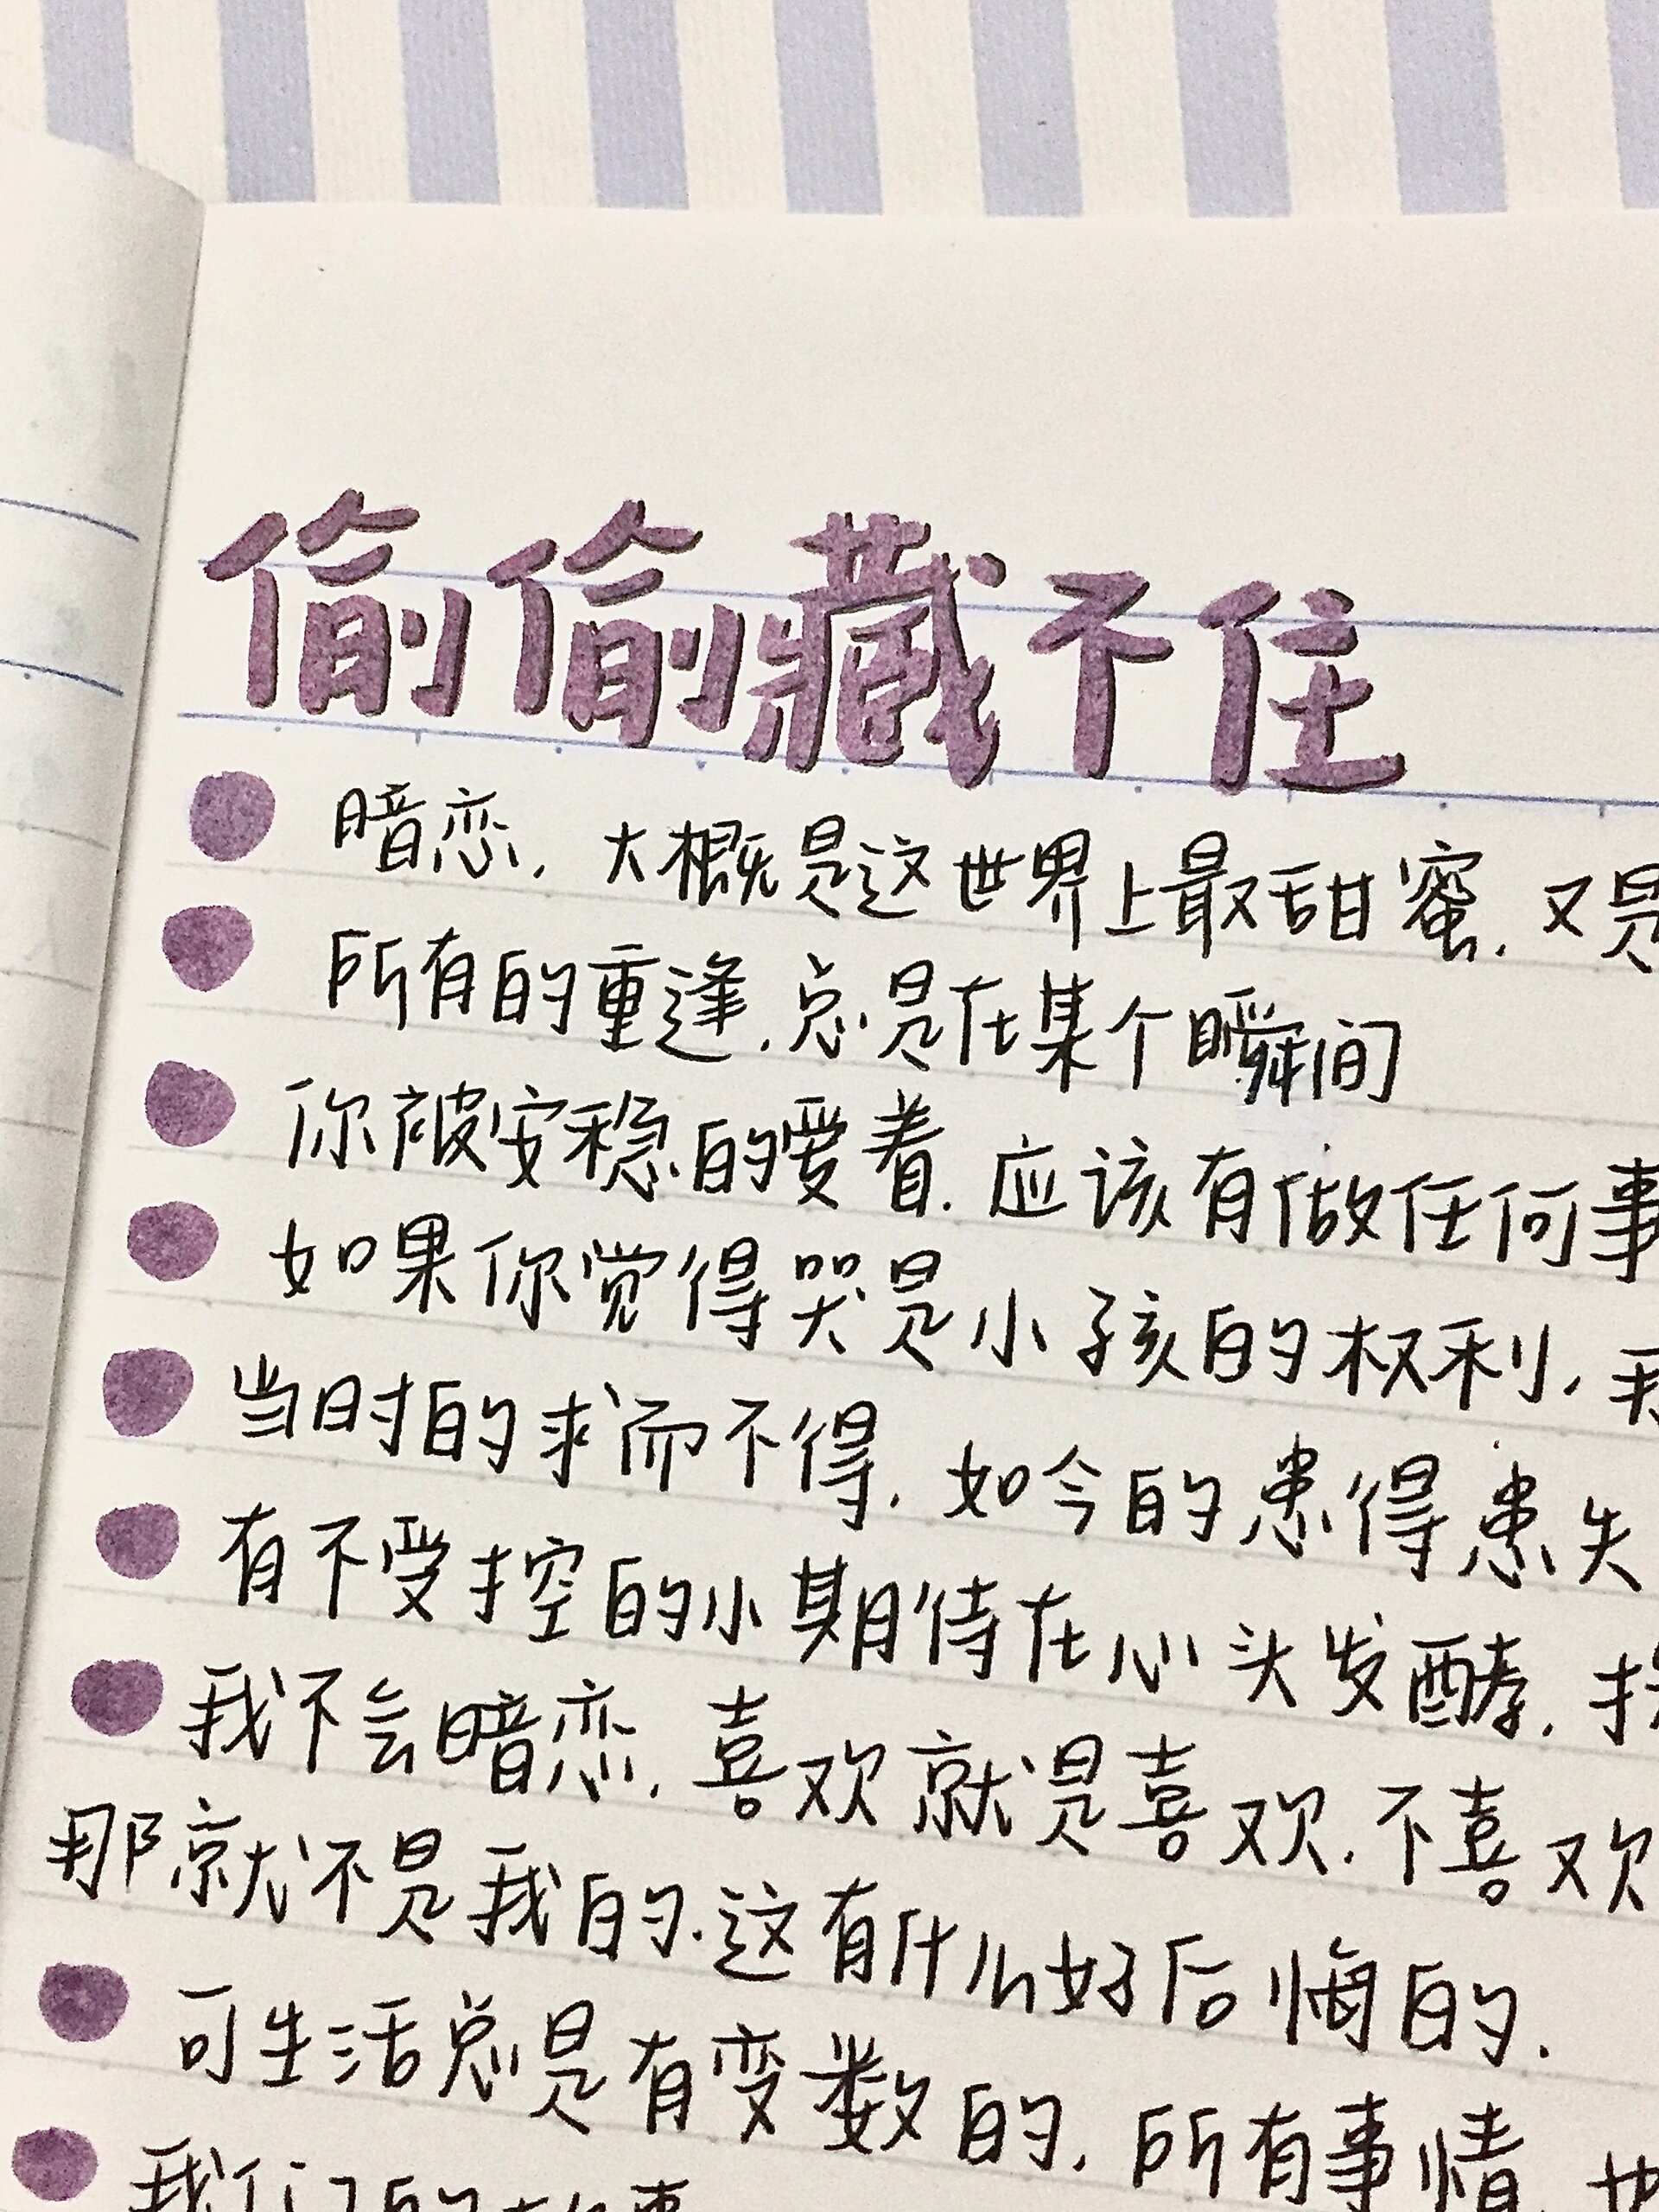 偷偷藏不住
暗恋,大概是这世界上最甜蜜,又是
所有的重逢,总是在某个瞬间
你被安稳的爱着,应该有做任何事
如果你觉得哭是小孩的权利,我
当时的求而不得,如今的患得患失
有不受控的小期待在心头发酵,
我不会暗恋,喜欢就是喜欢.不喜欢
那就不是我的.这有什么好后悔的.
可生活总是有变数的.所有事情,也
我们的故事